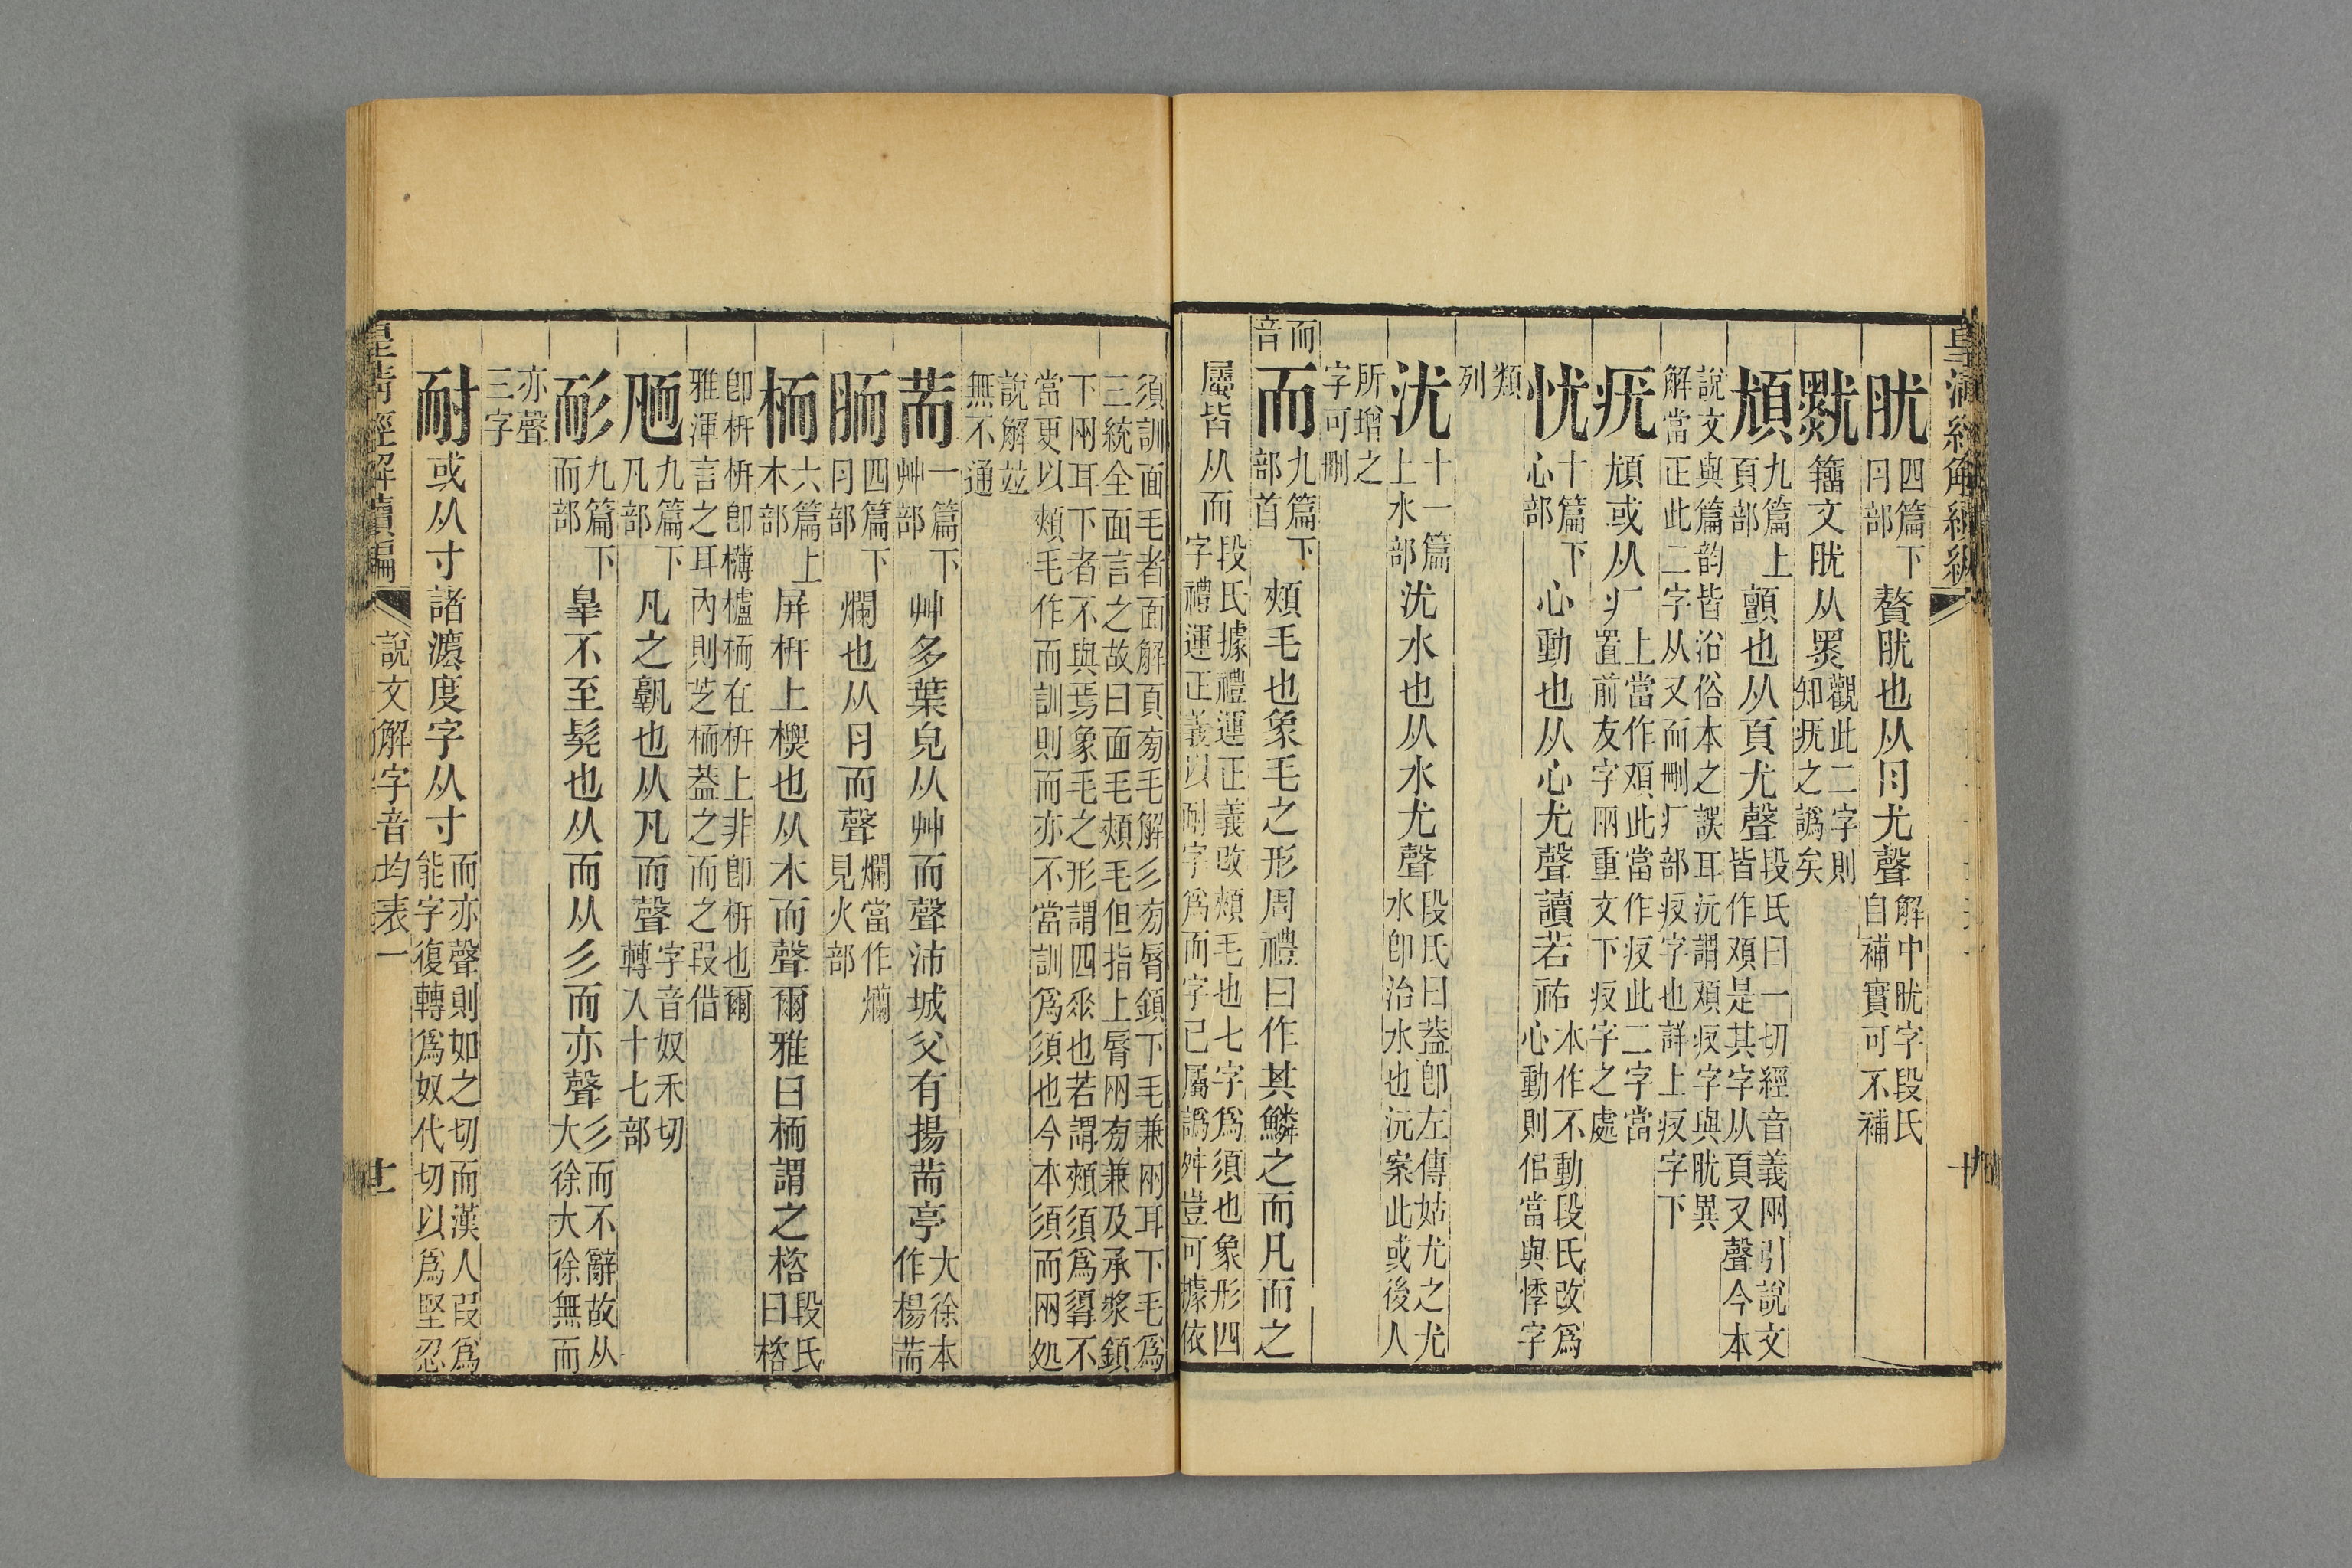 肬四篇下肉部贅肬也从肉尤聲解中肬字段氏自補實可不補
𪐗籒文肬从黑觀此二字則知疣之譌矣
頄九篇上頁部顫也从頁尤聲段氏曰一切經音義兩引說文皆作頄是其字从頁又聲今本
說文與篇韵皆沿俗本之誤耳沅謂頄疣字與肬異
解當正此二字从又而刪疒部疢字也詳上疢字下
疣頄或从疒上當作頄此當作疢此二字當置前友字兩重文下疢字之處
忧十篇下心部心動也从心尤聲讀若祐本作不動段氏改爲心動則侶當與悸字
類列
沋十一篇上水部沋水也从水尤聲段氏曰葢卽左傳姑尤之尤水卽治水也沅案此或後人
所增之字可刪
而音
而九篇下部首頰毛也象毛之形周禮曰作其鱗之而凡而之
屬皆从而段氏據禮運正義改頰毛也七字爲須也象形四字禮運正義以耐字爲而字已屬譌舛豈可據依
須訓面毛者面解頁㫄毛解彡㫄脣鎖下毛兼兩耳下毛爲
三統全面言之故曰面毛頰毛但指上脣兩㫄兼及承漿鎖
下兩耳下者不與焉象毛之形謂四㸚也若謂頰須爲㝵不
當更以頰毛作而訓則而亦不當訓爲須也今本須而兩処
說解竝無不通
荋一篇下艸部艸多葉皃从艸而聲沛城父有揚荋亭大徐本作楊荋
胹四篇下肉部爛也从肉而聲爛當作㸊見火部
栭六篇上木部屏枅上㮕也从木而聲爾雅曰栭謂之楶段氏曰楶
卽枅枅卽欂櫨栭在枅上非卽枅也爾
雅渾言之耳內則芝栭葢之而之叚借
𠒫九篇下丸部丸之孰也从丸而聲字音奴禾切轉入十七部
耏九篇下而部辠不至髡也从而从彡而亦聲彡而不辭故从大徐大徐無而
亦聲三字
耐或从寸諸灋度字从寸而亦聲則如之切而漢人叚爲能字復轉爲奴代切以爲堅忍
皇淸經解續編
說文解字音均表一